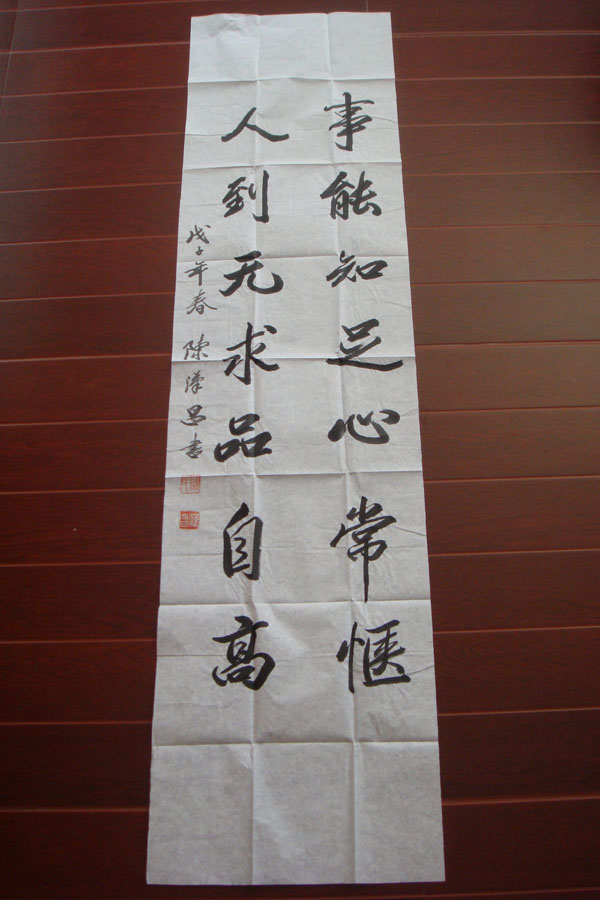 事能知足心常惬
人到无求品自高
戊子年春 陈漢昌书